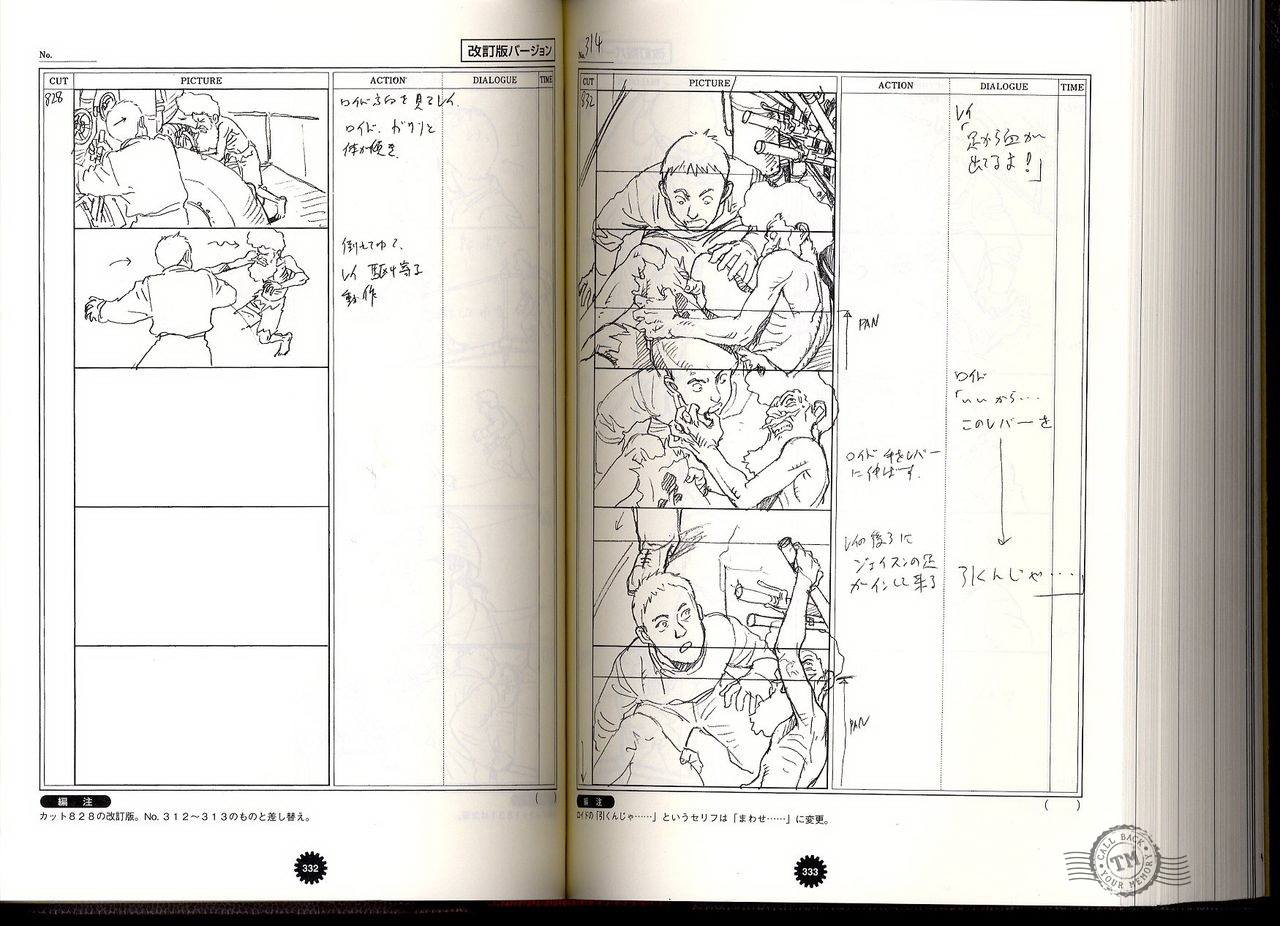 No.
改訂版バージョン
CUT
PICTURE
ACTION
DIALOGUE
TIME
828
ロイド
ロイド、ガクリと
体が傾き
倒れてゆく、
レイ 駆け寄る
動作
( )
編 注
カット828の改訂版。No. 312〜313のものと差し替え。
332
No. 314
CUT
PICTURE
ACTION
DIALOGUE
TIME
832
レイ
「足から血が
出てるよ!」
PAN
ロイド
「いいから…
このレバーを
ロイド 手をレバー
に伸ばす.
レイの後ろに
ジェイスンの足
がインして来る
引くんじゃ…
PAN
( )
編 注
ロイドの「引くんじゃ……」というセリフは「まわせ……」に変更。
333
CALL BACK
TM
YOUR MEMORY